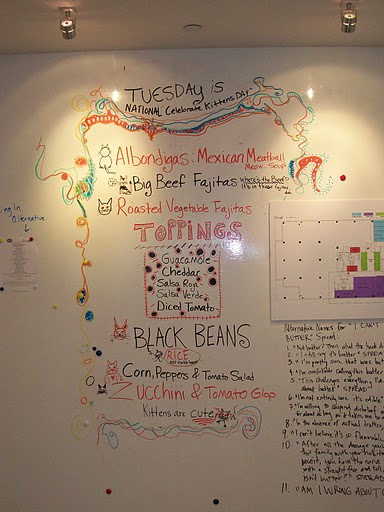 TUESDAY is
NATIONAL Celebrate Kittens DAY
Albondigas: Mexican Meatball
Meow. Soup
Big Beef Fajitas
Where's the Beef?
It's in these fajitas,
Roasted Vegetable Fajitas
TOPPINGS
Guacamole
Cheddar
Salsa Roja
Salsa Verde
Diced Tomato
BLACK BEANS
RICE
Corn, Peppers & Tomato Salad
Zucchini & Tomato Glop
Kittens are cute
ing In
alternative
Alternative Names for "I CAN'T
BUTTER" Spread
1. "Not butter? Then what the heck
2. "I do say it's butter" SPREAD
3. "I'm pretty sure that was butter
4. "I'm comfortable calling this butter
5. "This challenges everything I
about butter" SPREAD
6. "I'm not entirely sure it's edible"
7. "I'm willing to suspend disbelief
8. "In the absence of actual butter,
9. "I can't believe it's so flammable
10. "After all the damage you
this family with your
you have the nerve
with a straight face and tell
isn't butter?" SPREAD
11. "AM I WRONG ABOUT